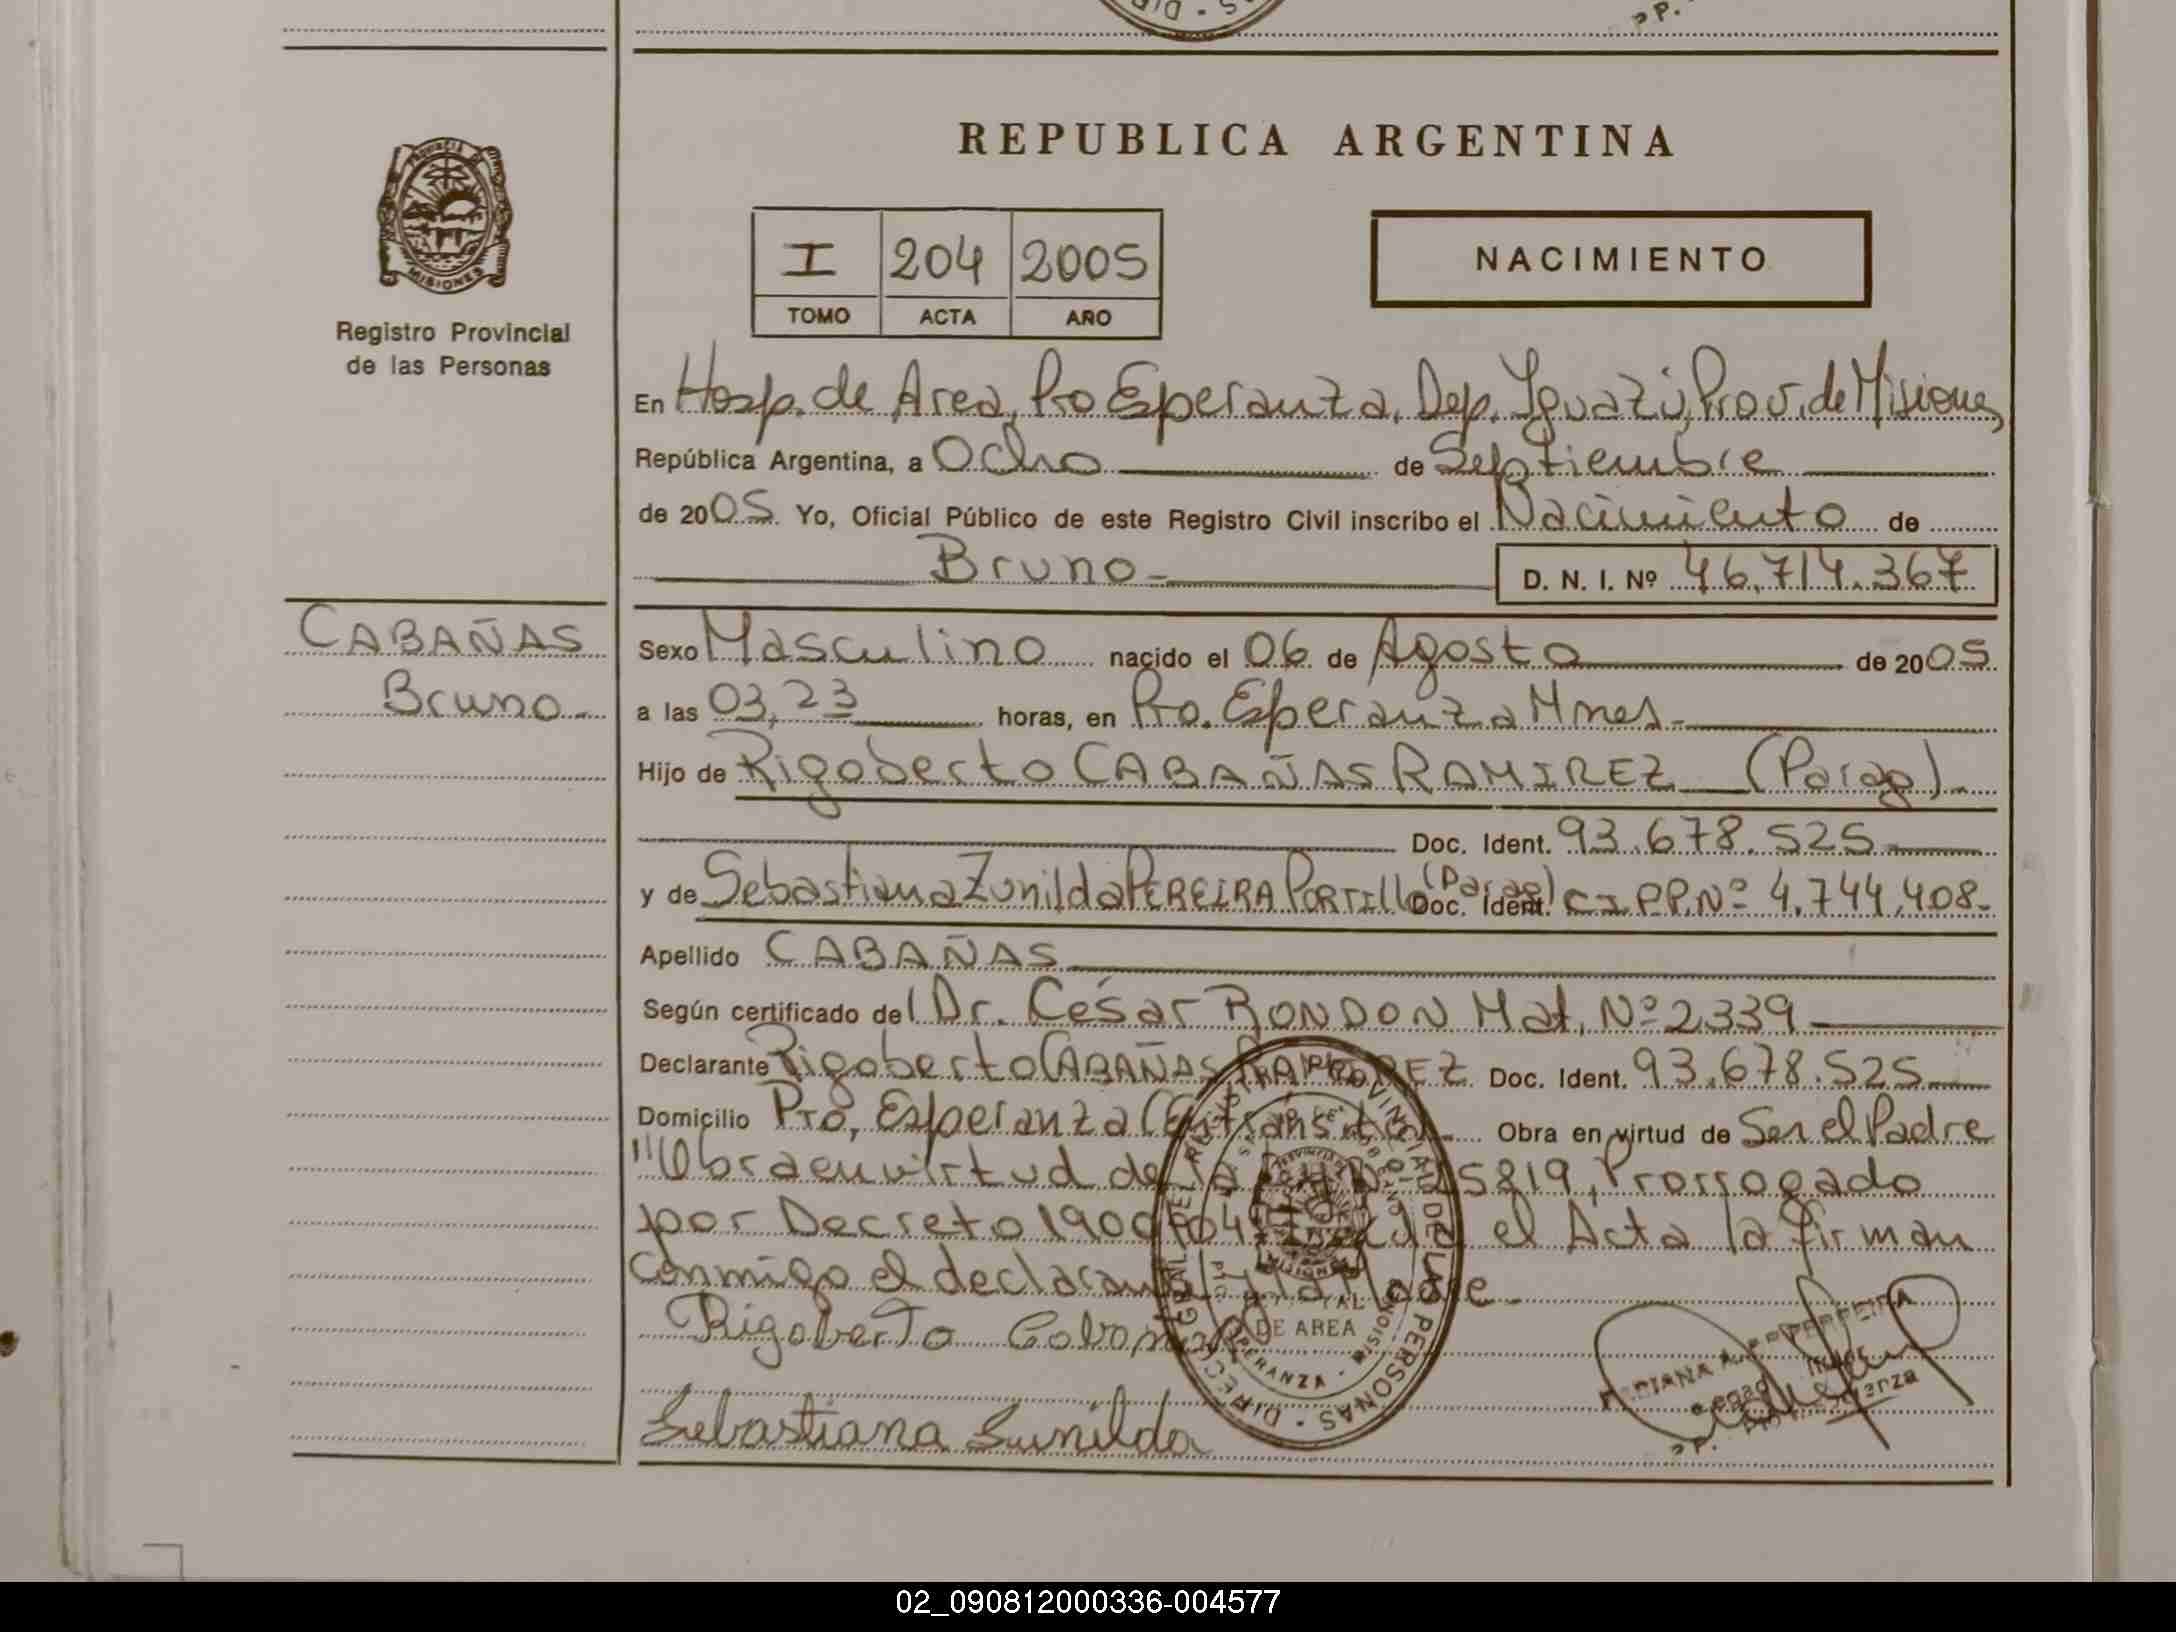 REPUBLICA ARGENTINA
I 204 2005
TOMO ACTA AÑO
NACIMIENTO
MISIONES
Registro Provincial
de las Personas
En Hosp. de Area, Pto Esperanza, Dep. Iguazú, Prov. de Misiones,
República Argentina, a Ocho de Septiembre
de 2005. Yo, Oficial Público de este Registro Civil inscribo el Nacimiento de
Bruno-
D. N. I. Nº 46.714.367
CABAÑAS
Bruno-
Sexo Masculino nacido el 06 de Agosto de 2005
a las 03,23 horas, en Pto. Esperanza Mnes.-
Hijo de Rigoberto CABAÑAS RAMIREZ (Parag).-
Doc. Ident. 93.678.525
y de Sebastiana Zunilda PEREIRA PORTILLO (Parag) Doc. Ident. C.I. P.P. Nº 4.744.408-
Apellido CABAÑAS
Según certificado del Dr. César RONDON Mat. Nº 2339
Declarante Rigoberto CABAÑAS RAMIREZ Doc. Ident. 93.678.525
Domicilio Pto, Esperanza (En tránsito) Obra en virtud de Ser el Padre
"Obra en virtud de la Ley Nº 25819, Prorrogado
por Decreto 190 /04 el Acta la firman
conmigo el declarante y la Madre-
Rigoberto Cabañas
Sebastiana Sunilda
DE AREA
02_090812000336-004577